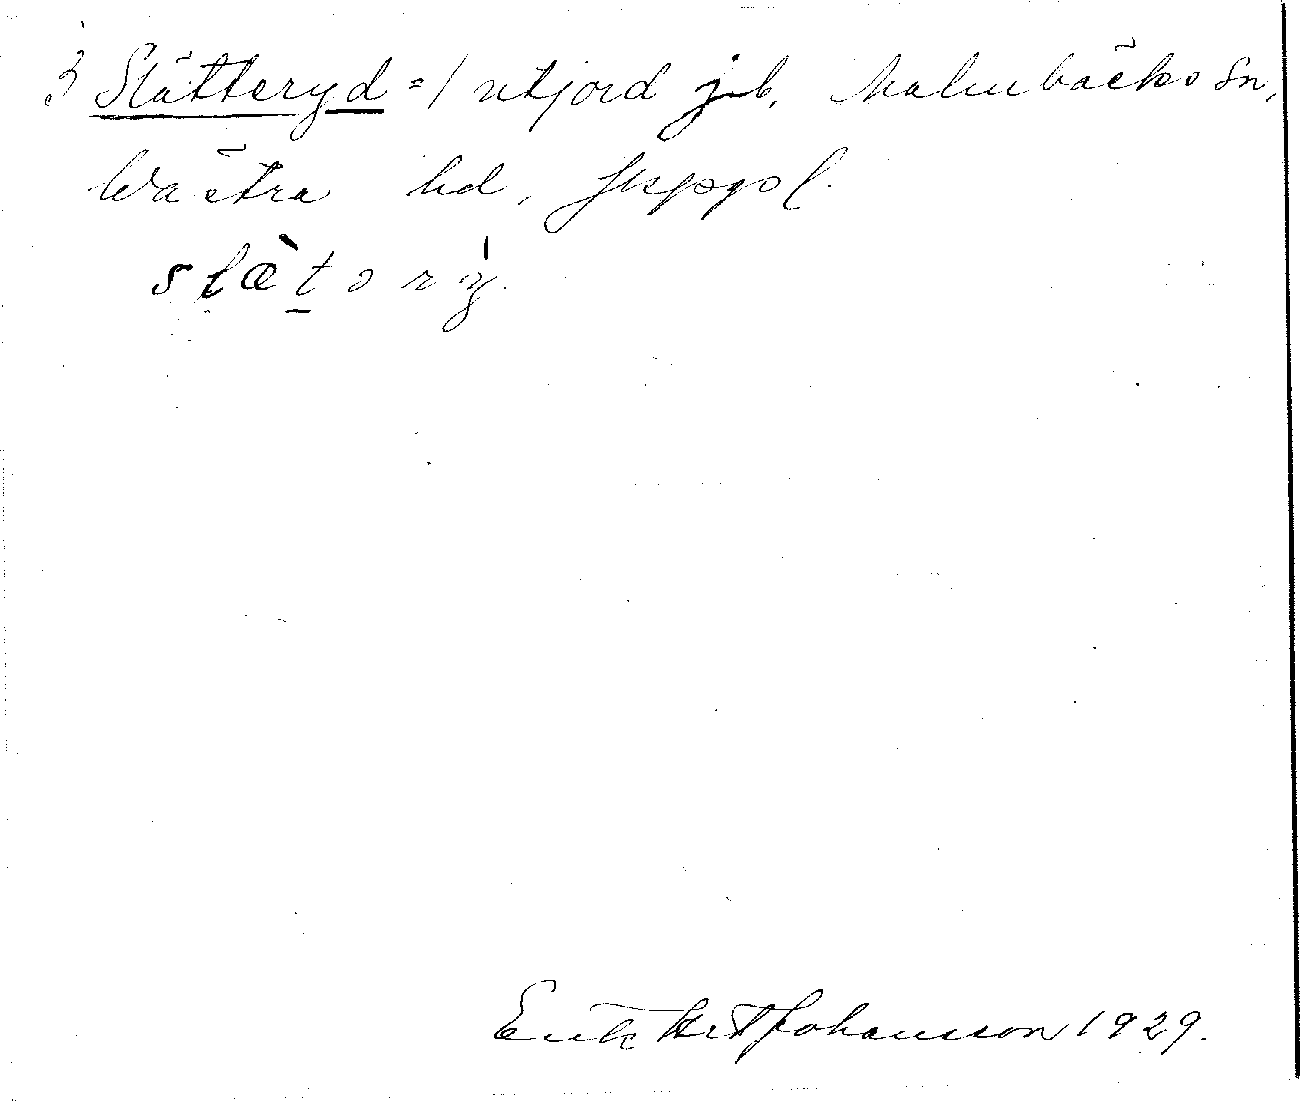 3 Slätteryd = 1 utjord jrb, Malmbäcks sn,
Västra hd, Jkpgs l.
slæ̀tərý.
Erik Art Johansson 1929.